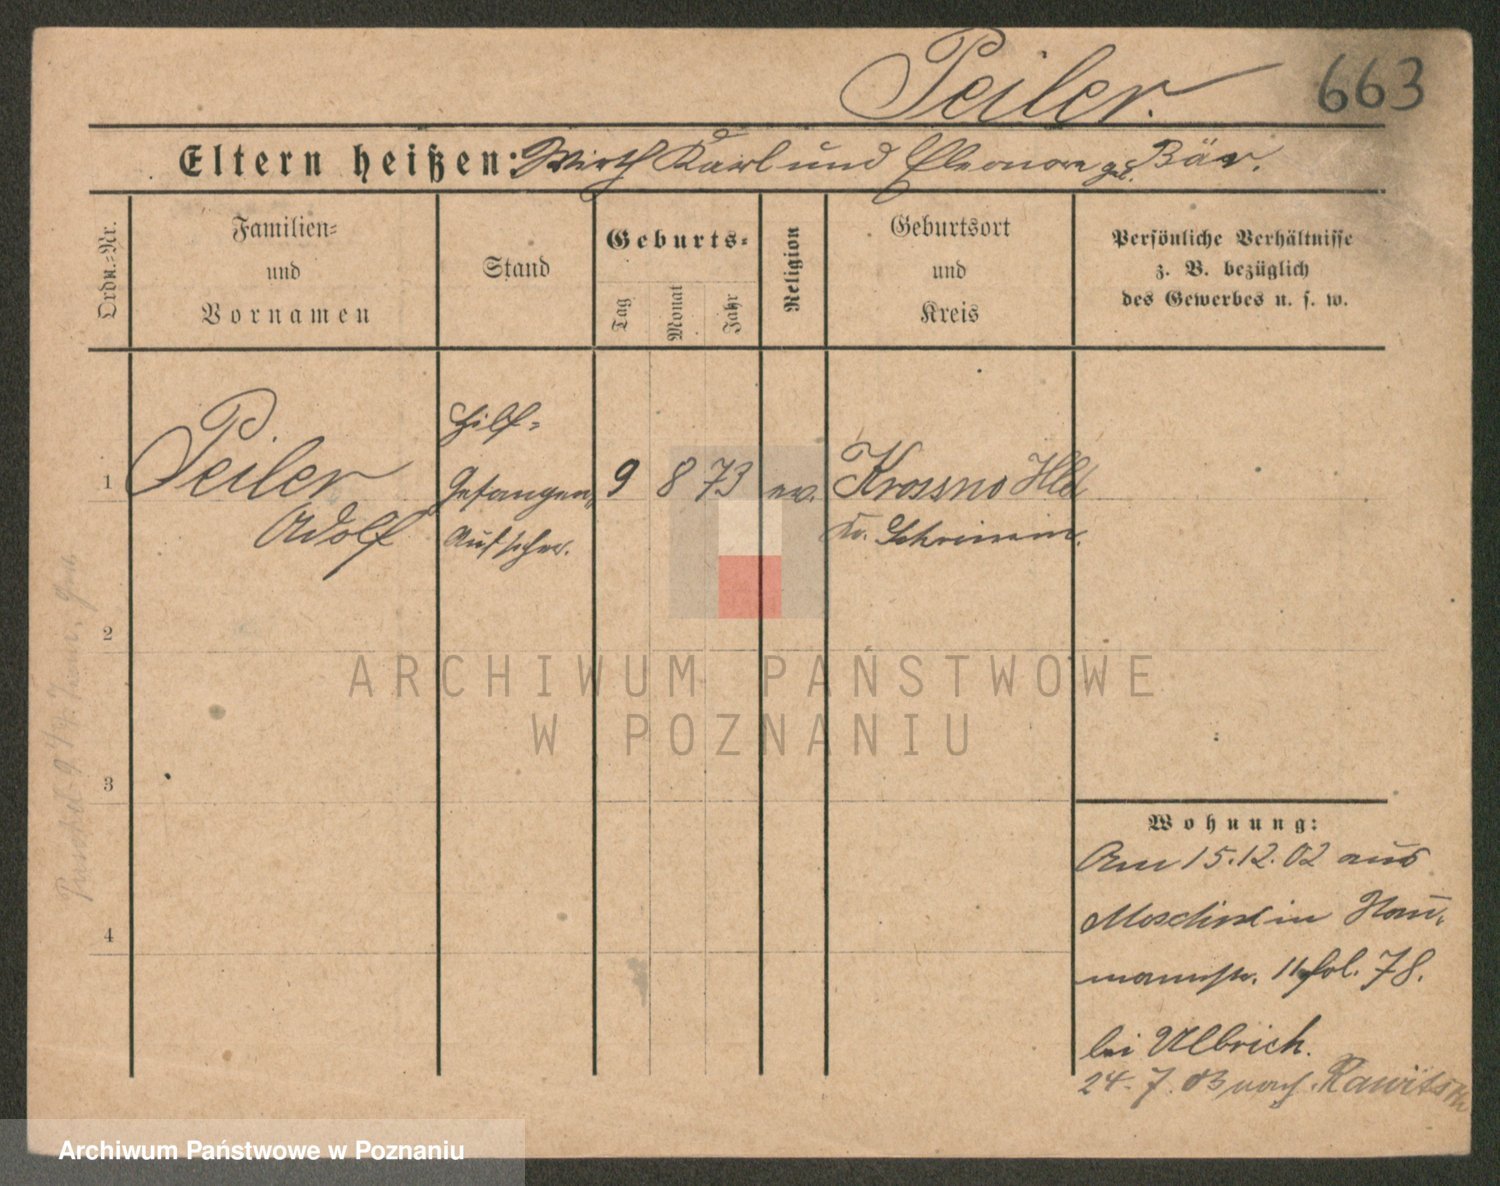 Peiler.
663
Eltern heißen: Wirth Karl und Eleonore geb. Bär.
Ordn.-Nr.
Familien-
und
Vornamen
Stand
Geburts-
Tag
Monat
Jahr
Religion
Geburtsort
und
Kreis
Persönliche Verhältnisse
z. B. bezüglich
des Gewerbes u. s. w.
1
Peiler
Adolf
Hilf-
Gefangen-
Aufseher.
9 8 73 ev.
Krossno Hld
Kr. Schrimm.
2
3
4
Wohnung:
Am 15.12.02 aus
Moschin in Nau-
mannstr. 11 fol. 78.
bei Ulbrich.
24.7.03 nach Rawitsch
ARCHIWUM PAŃSTWOWE
W POZNANIU
Archiwum Państwowe w Poznaniu